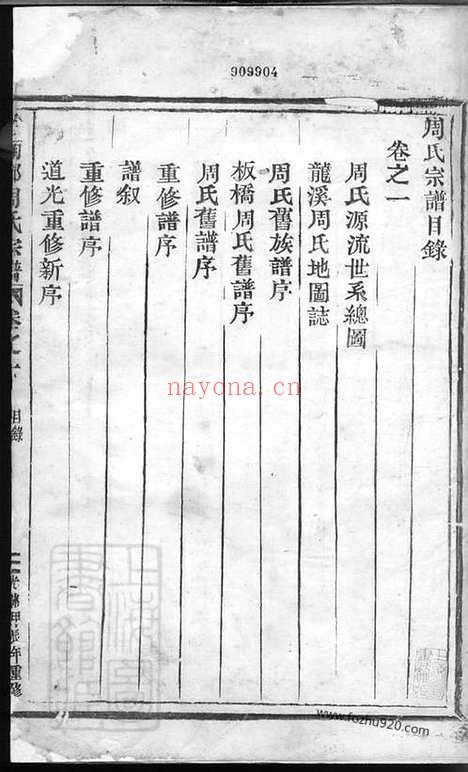 909904
周氏宗譜目錄
卷之一
周氏源流世系總圖
龍溪周氏地圖誌
周氏舊族譜序
板橋周氏舊譜序
周氏舊譜序
重修譜序
譜叙
重修譜序
道光重修新序
周氏宗譜
卷之
目錄
年重修
nayona.cn
www.fozhu920.com